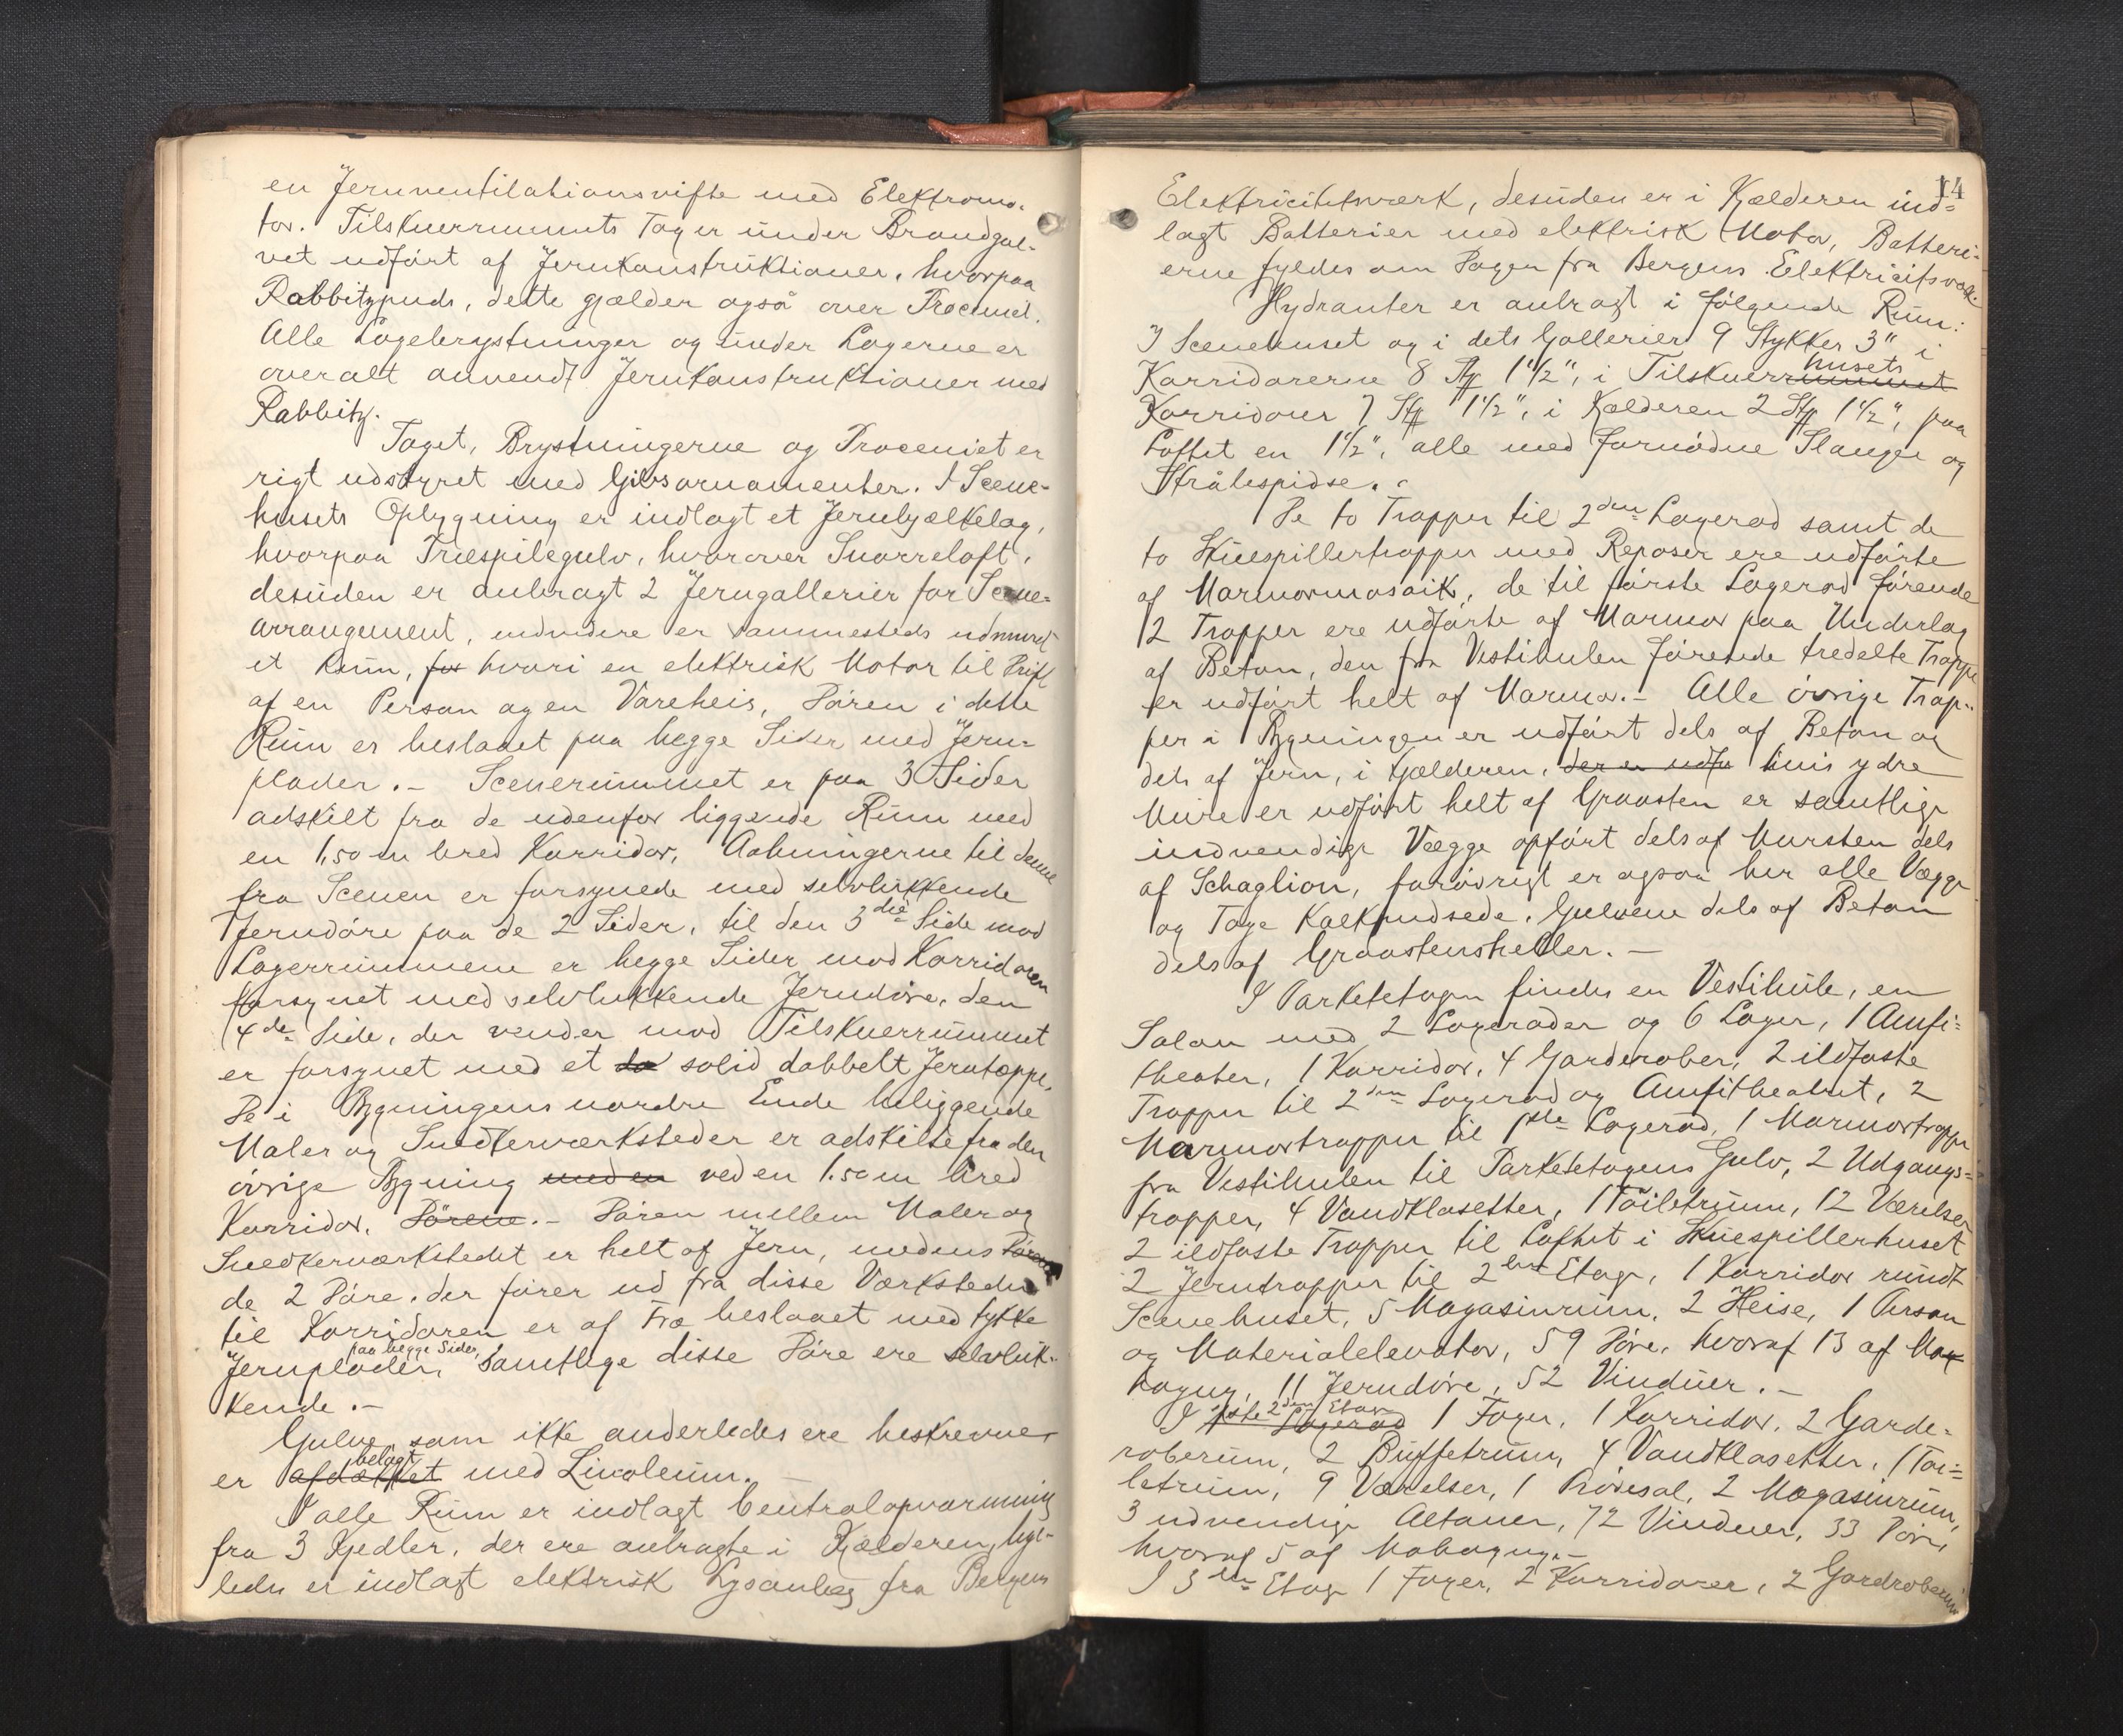 en Jernventilationsvifte med Elektromo-
tor. Tilskuerrummets Tag er under Brandgul-
vet udført af Jernkonstruktioner, hvorpaa
Rabbitzpuds, dette gjælder også over Procenid.
Alle Logebrystninger og under Logerne er
overalt anvendt Jernkonstruktioner med
Rabbitz.
Taget, Brystningerne og Proceniet er
rigt udstyret med Gibsornamenter. I Scene-
husets Opbygning er indlagt et Jernbjælkelag,
hvorpaa Træspilegulv, hvorover Snorreloft,
desuden er anbragt 2 Jerngallerier for Scene-
arrangement, endvidere er sammesteds udmuret
et Rum, for hvori en elektrisk Motor til Drift
af en Person og en Vareheis, Døren i dette
Rum er beslaaet paa begge Sider med Jern-
plader. – Scenerummet er paa 3 Sider
adskilt fra de udenfor liggende Rum med
en 1,50 m bred Korridor, Aabningerne til denne
fra Scenen er forsynede med selvlukkende
Jerndøre paa de 2 Sider, til den 3die Side mod
Lagerrummene er begge Sider mod Korridoren
forsynet med selvlukkende Jerndøre, den
4de Side, der vender mod Tilskuerrummet
er forsynet med et do solid dobbelt Jerntæppe,
De i Bygningens nordre Ende beliggende
Maler og Snedkerværksteder er adskilte fra den
øvrige Bygning med en ved en 1.50 m bred
Korridor, Dørene. – Døren mellem Maler og
Snedkerværkstedet er helt af Jern, medens Dørene
de 2 Døre, der fører ud fra disse Værksteder
til Korridoren er af Træ beslaaet med tykke
paa begge Sider,
Jernplader, samtlige disse Døre ere selvluk-
kende. –
Gulve som ikke anderledes ere beskrevne
belagt
er afdækket med Linoleum. –
I alle Rum er indlagt Centralopvarmning
fra 3 Kjedler, der ere anbragte i Kjælderen, lige-
ledes er indlagt elektrisk Lysanlæg fra Bergens
14
Elektricitetsværk, desuden er i Kjælderen ind-
lagt Batterier med elektrisk Motor, Batteri-
erne fyldes om Dagen fra Bergens Elektricitsværk.
Hydranter er anbragt i følgende Rum:
I Scenehuset og i dets Gallerier 9 Stykker 3" i
husets
Korridorerne 8 Stk 1 1/2", i Tilskuerrummet
Korridorer 7 Stk 1 1/2", i Kjælderen 2 Stk 1 1/2", paa
Loftet en 1 1/2", alle med fornødne Slanger og
Strålespidse.
De to Trapper til 2den Logerad samt de
to Skuespillertrapper med Reposer ere udførte
af Marmormosaik, de til første Logerad førende
2 Trapper ere udførte af Marmor paa Underlag
af Beton, den fra Vestibulen førende tredelte Trappe
er udført helt af Marmor. – Alle øvrige Trap-
per i Bygningen er udført dels af Beton og
dels af Jern, i Kjælderen, der er udfø hvis ydre
Mure er udført helt af Graasten er samtlige
indvendige Vægge opført dels af Mursten dels
af Schaglion, forøvrigt er ogsaa her alle Vægge
og Tage Kalkpudsede. Gulvene dels af Beton
dels af Graastensheller. –
I Parketetagen findes en Vestibule, en
Salon med 2 Logerader og 6 Loger, 1 Amfi-
theater, 1 Korridor, 4 Garderober, 2 ildfaste
Trapper til 2den Logerad og Amfitheatret, 2
Marmortrapper til 1ste Logerad, 1 Marmortrappe
fra Vestibulen til Parketetagens Gulv, 2 Udgangs-
trapper, 4 Vandklosetter, 1 Toiletrum, 12 Værelser
2 ildfaste Trapper til Loftet i Skuespillerhuset
2 Jerntrapper til 2den Etage, 1 Korridor rundt
Scenehuset, 5 Magasinrum, 2 Heise, 1 Person
og Materialelevator, 59 Døre, hvoraf 13 af Ma-
hogny, 11 Jerndøre, 52 Vinduer. –
2den Etage
I 1ste Logerad 1 Foyer, 1 Korridor, 2 Garde-
roberum, 2 Buffetrum, 4 Vandklosetter, 1 Toi-
letrum, 9 Værelser, 1 Prøvesal, 2 Magasinrum,
3 udvendige Altaner, 72 Vinduer, 33 Døre,
hvoraf 5 af Mahogny. –
I 3die Etage 1 Foyer, 2 Korridorer, 2 Garderoberum